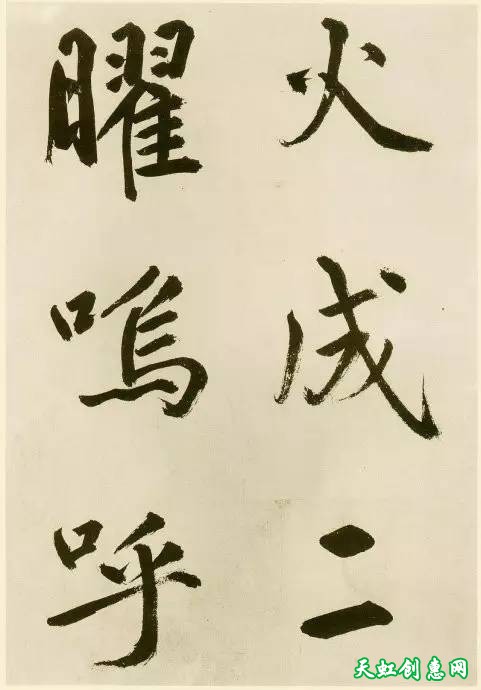 火成二
曜嗚呼
天虹创惠网